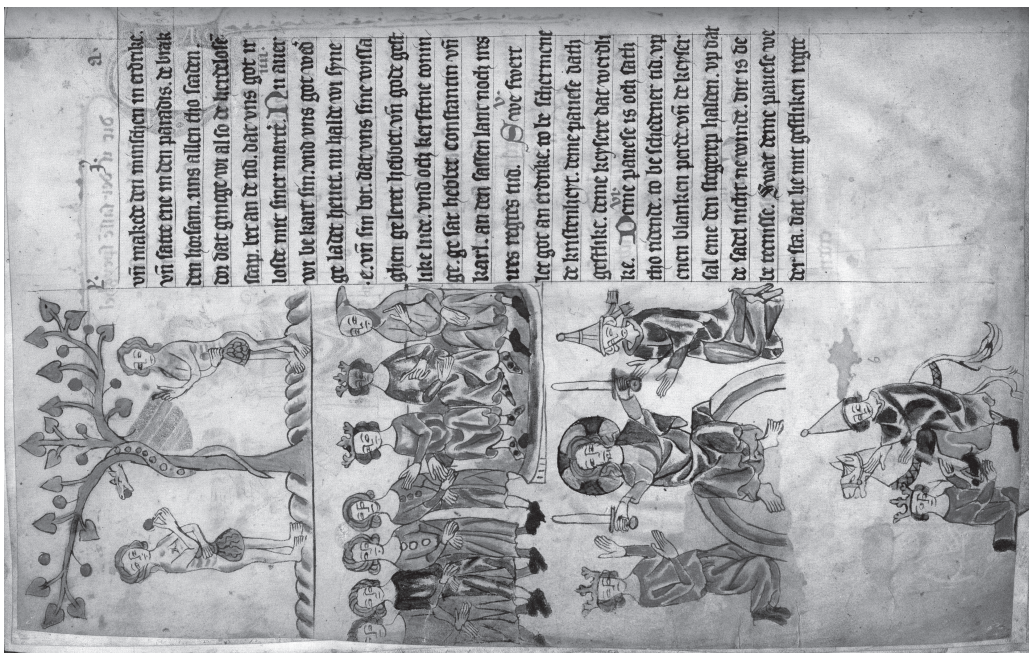 vn̄ makede den minschen in erdrike.
vn̄ satte ene in den paradis. de brak
den horsam. uns allen tho scaden
dor dat ginge wi also de herdelose
scap. bet an de tid. dat vns got ir
loste mit siner martir. Nu auer
wi bekart sin. vnd vns got wed
ge ladet heuet. nu halde wi syne
.e. vn̄ sin bot. dat vns sine wissa
ghen gelert hebbet. vn̄ gode gest
like lude. vnd och kerstene konin
ge. gesat hebbet. constantin vn̄
karl. an den sassen lant noch
regtes tud. Swe swert
let got an erdrike. to bescermene
de kristenheyt. deme pauese dath
gestlike. deme keysere dat werdli
ke. Deme pauese is och sath
tho ridende. to bescedener tid. vp
enen blanken perde. vn̄ de keyser
sal eme den stegerep halden. vp dat
de sadel nicht ne winde. dit is de
betecnisse. Swat deme pauese we
der sta. dat he mit gestliken regte